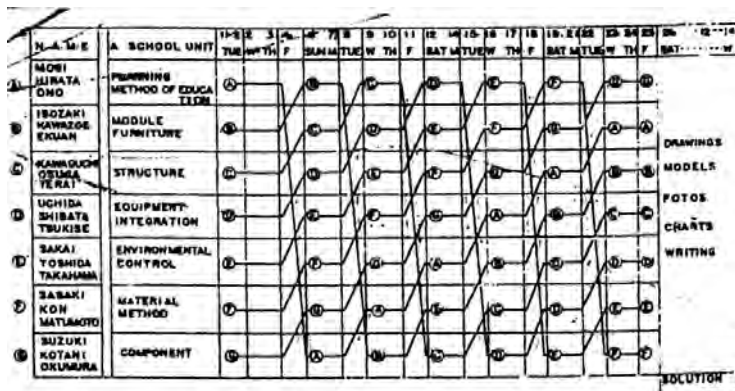 N-A-M-E A SCHOOL UNIT
TUE W TH F SUN M TUE W TH F SAT M TUE W TH F SAT M TUE W TH F SAT
MOSI
HIRATA
ONO
PLANNING
METHOD OF EDUCA
TION
A B C D E F G G
B ISOZAKI
KAWAZOE
EKUAN
MODULE
FURNITURE
B C D E F G A A
C KAWAGUCHI
TERAI
STRUCTURE
C D E F G A B B
D UCHIDA
SHIBATA
TSUKISE
EQUIPMENT-
INTEGRATION
D E F G A B C C
E SAKAI
YOSHIDA
TAKAHAMA
ENVIRONMENTAL
CONTROL
E F G A B C D D
F SASAKI
KON
MATUMOTO
MATERIAL
METHOD
F G A B C D E E
G SUZUKI
KOTANI
OKUMURA
COMPONENT
G A B C D E F F
DRAWINGS
MODELS
FOTOS
CHARTS
WRITING
SOLUTION